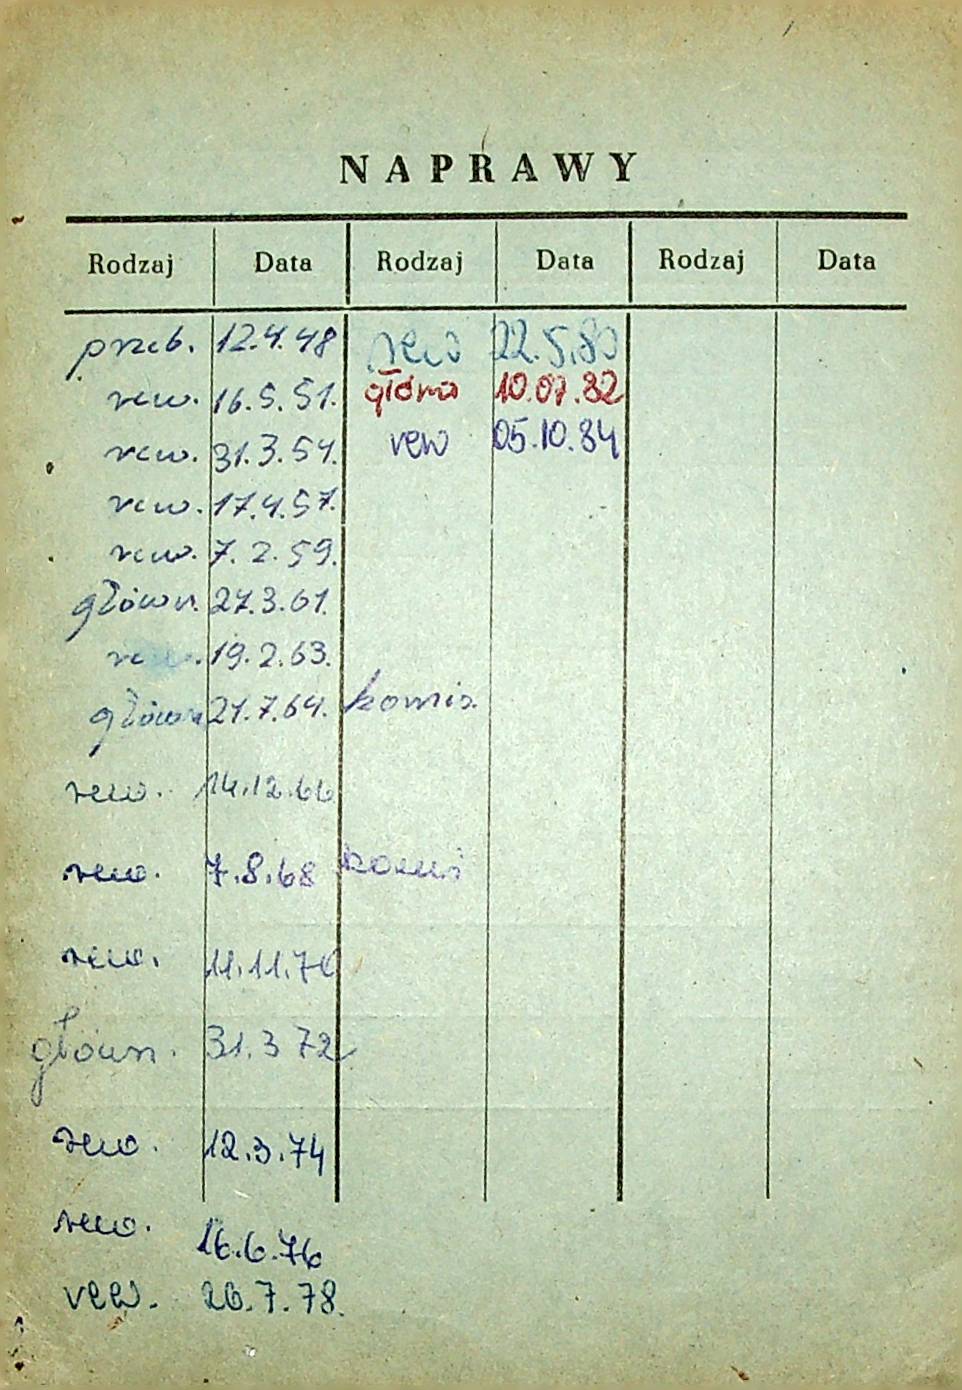 NAPRAWY
Rodzaj Data Rodzaj Data Rodzaj Data
przeb. 12.4.48 rew 22.5.80
rew. 16.5.51. główna 10.07.82
rew. 31.3.54. rew 05.10.84
rew. 17.4.57.
rew. 7.2.59.
główn. 27.3.61.
19.2.63.
główn 21.7.64. komis.
rew. 14.12.66
rew. 7.8.68 komis
rew. 11.11.70
główn. 31.3 72
rew. 12.3.74
rew. 16.6.76
rew. 26.7.78.